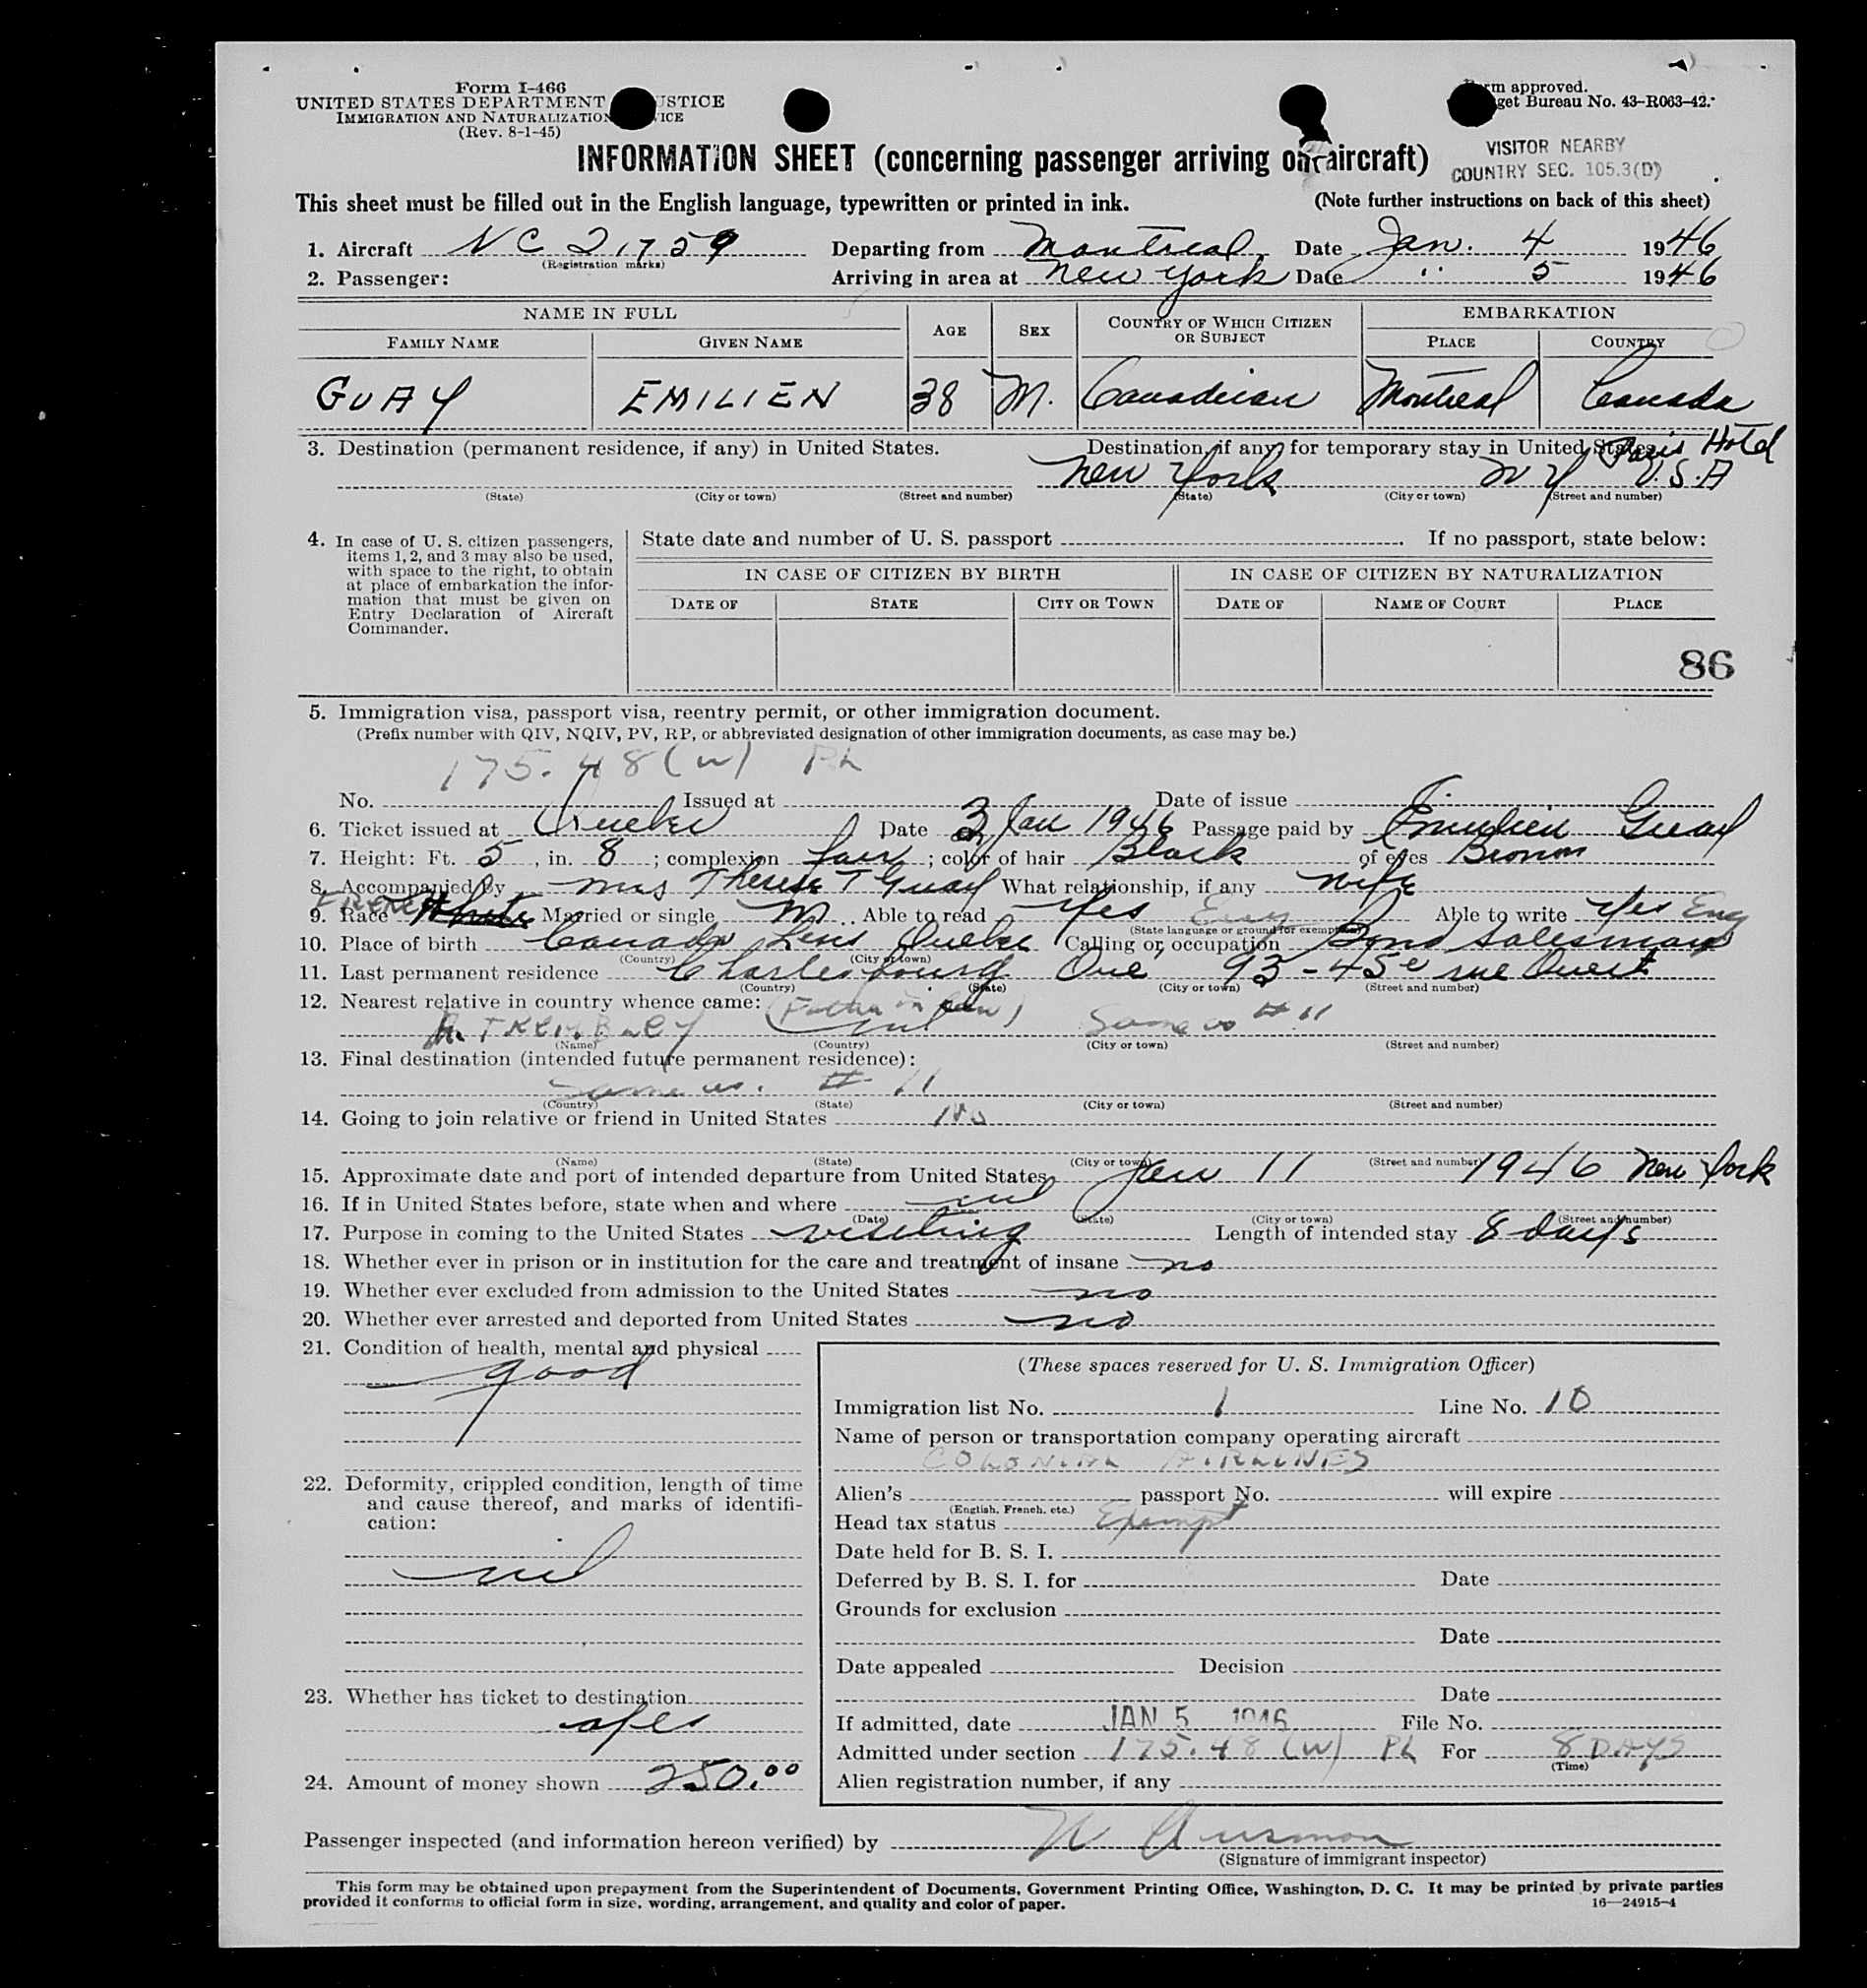 Form I-466
UNITED STATES DEPARTMENT USTICE
IMMIGRATION AND NATURALIZATION ICE
(Rev. 8-1-45)
rm approved.
get Bureau No. 43-R063-42.
INFORMATION SHEET (concerning passenger arriving on aircraft)
VISITOR NEARBY
COUNTRY SEC. 105.3(D)
This sheet must be filled out in the English language, typewritten or printed in ink. (Note further instructions on back of this sheet)
1. Aircraft NC 21759 Departing from Montreal Date Jan. 4 1946
(Registration marks)
2. Passenger: Arriving in area at New York Date " 5 1946
NAME IN FULL AGE SEX COUNTRY OF WHICH CITIZEN OR SUBJECT EMBARKATION
FAMILY NAME GIVEN NAME PLACE COUNTRY
GUAY EMILIEN 38 M. Canadian Montreal Canada
3. Destination (permanent residence, if any) in United States. Destination, if any, for temporary stay in United States. Paris Hotel
New York N Y U.S.A
(State) (City or town) (Street and number) (State) (City or town) (Street and number)
4. In case of U. S. citizen passengers, items 1, 2, and 3 may also be used, with space to the right, to obtain at place of embarkation the information that must be given on Entry Declaration of Aircraft Commander.
State date and number of U. S. passport . If no passport, state below:
IN CASE OF CITIZEN BY BIRTH IN CASE OF CITIZEN BY NATURALIZATION
DATE OF STATE CITY OR TOWN DATE OF NAME OF COURT PLACE
86
5. Immigration visa, passport visa, reentry permit, or other immigration document.
(Prefix number with QIV, NQIV, PV, RP, or abbreviated designation of other immigration documents, as case may be.)
175.48(W) PL
No. Issued at Date of issue
6. Ticket issued at Quebec Date 3 Jan 1946 Passage paid by Emilien Guay
7. Height: Ft. 5, in. 8; complexion fair; color of hair Black of eyes Brown
8. Accompanied by Mrs Therese T Guay What relationship, if any wife
FRENCH
9. Race White Married or single M. Able to read Yes Eng Able to write Yes Eng
(State language or ground for exemption)
10. Place of birth Canada Quebec Calling or occupation Bond Salesman
(Country) (City or town)
11. Last permanent residence Charlesbourg Que, 93-45e rue Ouest
(Country) (State) (City or town) (Street and number)
12. Nearest relative in country whence came: (Father in law)
A. TREMBLEY nil Same as #11
(Name) (Country) (City or town) (Street and number)
13. Final destination (intended future permanent residence):
Same as. # 11
(Country) (State) (City or town) (Street and number)
14. Going to join relative or friend in United States no
(Name) (State) (City or town) (Street and number)
15. Approximate date and port of intended departure from United States Jan 11 1946 New York
16. If in United States before, state when and where nil
(Date) (State) (City or town) (Street and number)
17. Purpose in coming to the United States visiting Length of intended stay 8 days
18. Whether ever in prison or in institution for the care and treatment of insane no
19. Whether ever excluded from admission to the United States no
20. Whether ever arrested and deported from United States no
21. Condition of health, mental and physical
good
22. Deformity, crippled condition, length of time and cause thereof, and marks of identification:
nil
23. Whether has ticket to destination
yes
24. Amount of money shown 250.00
(These spaces reserved for U. S. Immigration Officer)
Immigration list No. 1 Line No. 10
Name of person or transportation company operating aircraft
COLONIAL AIRLINES
Alien's passport No. will expire
(English, French, etc.)
Head tax status Exempt
Date held for B. S. I.
Deferred by B. S. I. for Date
Grounds for exclusion
Date
Date appealed Decision
Date
If admitted, date JAN 5 1946 File No.
Admitted under section 175.48 (W) PL For 8 DAYS
(Time)
Alien registration number, if any
Passenger inspected (and information hereon verified) by
(Signature of immigrant inspector)
This form may be obtained upon prepayment from the Superintendent of Documents, Government Printing Office, Washington, D. C. It may be printed by private parties
provided it conforms to official form in size, wording, arrangement, and quality and color of paper. 16—24915-4